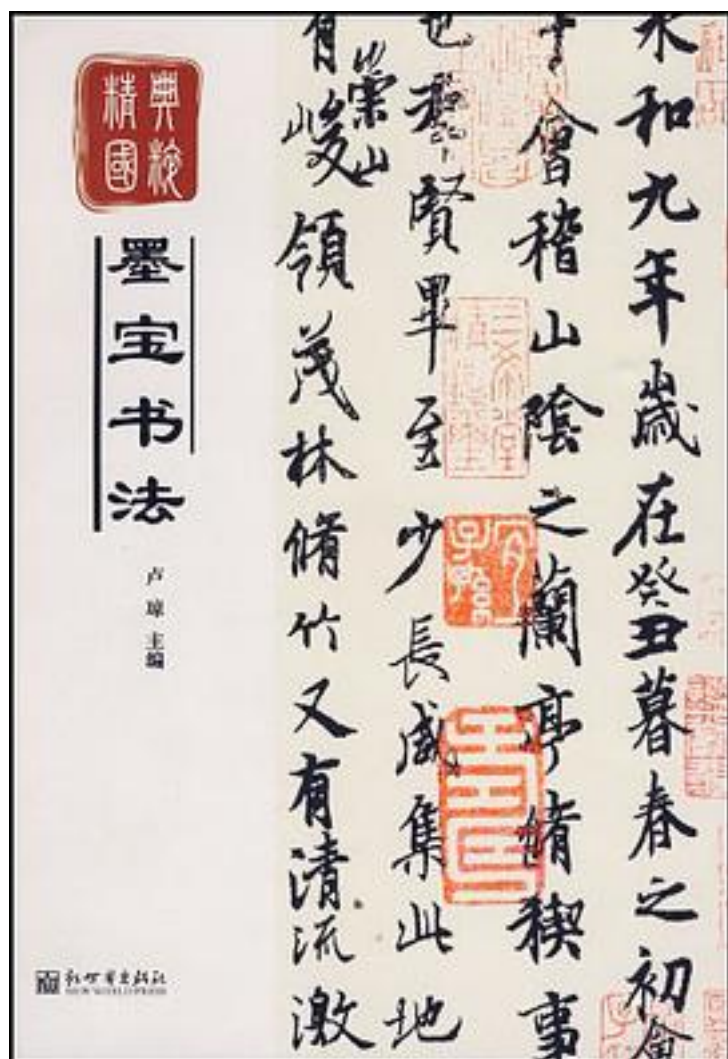 精典
國粹
墨宝书法
卢琼 主编
新世界出版社
NEW WORLD PRESS
永和九年歲在癸丑暮春之初會
于會稽山陰之蘭亭脩禊事
也羣賢畢至少長咸集此地
有崇山峻領茂林脩竹又有清流激
三希堂精鑑璽
宜子孫